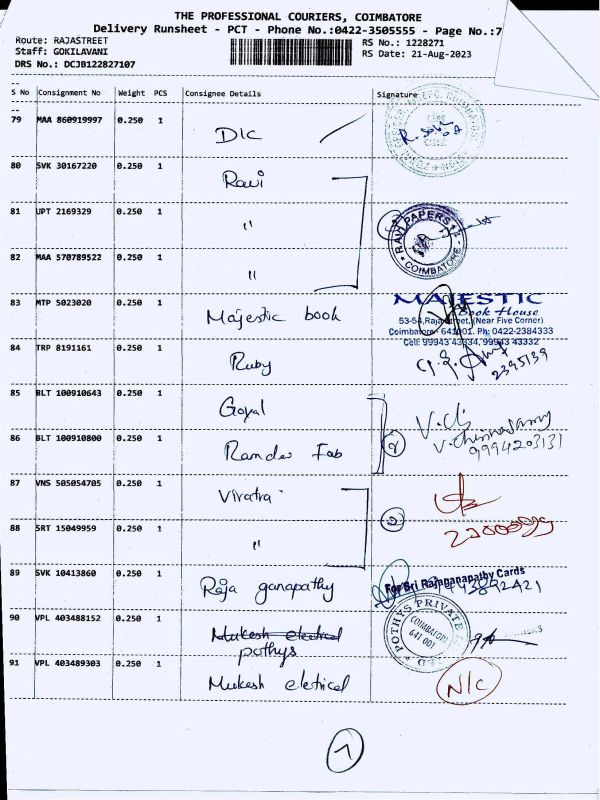 THE PROFESSIONAL COURIERS, COIMBATORE
Delivery Runsheet - PCT - Phone No.:0422-3505555 - Page No.:7
Route: RAJASTREET
RS No.: 1228271
Staff: GOKILAVANI
RS Date: 21-Aug-2023
DRS No.: DCJB122827107
S No Consignment No Weight PCS Consignee Details Signature
79 MAA 860919997 0.250 1 DLC
80 SVK 30167220 0.250 1 Ravi
81 UPT 2169329 0.250 1 "
RAVI PAPERS
COIMBATORE
82 MAA 570789522 0.250 1 "
83 MTP 5023020 0.250 1 Majestic book
MAJESTIC
Book House
53-54, Raja Street, (Near Five Corner)
Coimbatore - 641001. Ph: 0422-2384333
Cell: 99943 43334, 99943 43332
84 TRP 8191161 0.250 1 Ruby
2395139
85 BLT 100910643 0.250 1 Goyal
86 BLT 100910800 0.250 1 Ramdev Fab
V. Chinnasamy
9994203131
87 VNS 505054705 0.250 1 Viratra
88 SRT 15049959 0.250 1 "
89 SVK 10413860 0.250 1 Raja ganapathy
For Sri Rajaganapathy Cards
90 VPL 403488152 0.250 1 Mukesh electrical
pothys
POTHYS PRIVATE
COIMBATORE
641 001
91 VPL 403489303 0.250 1 Mukesh eletrical N/C
7